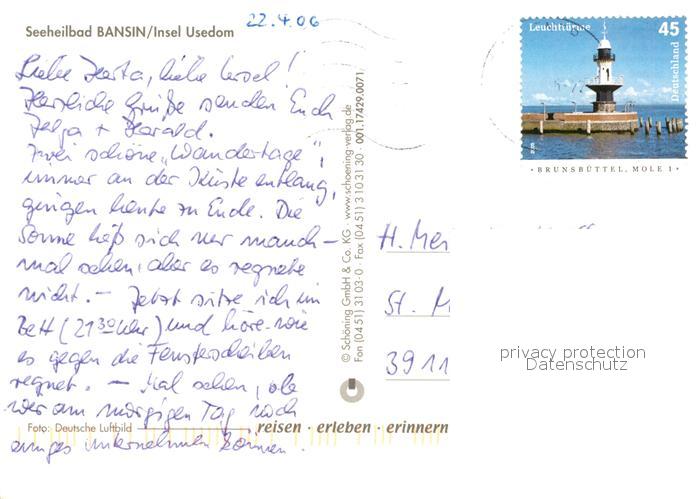 22.4.06
Seeheilbad BANSIN/Insel Usedom
Liebe Herta, liebe Ursel!
Herzliche Grüße senden Euch
Helga + Harald.
Zwei schöne „Wandertage“,
immer an der Küste entlang,
gingen heute zu Ende. Die
Sonne ließ sich nur manch-
mal sehen, aber es regnete
nicht. – Jetzt sitze ich im
Bett (21 30 Uhr) und höre wie
es gegen die Fensterscheiben
regnet. – Mal sehen, ob
wir am morgigen Tag noch
einiges unternehmen können.
Foto: Deutsche Luftbild
reisen · erleben · erinnern
© Schöning GmbH & Co. KG · www.schoening-verlag.de
Fon (04 51) 31 03-0 · Fax (04 51) 3 10 31 30 001.17429.0071
Leuchttürme 45
Deutschland
BRUNSBÜTTEL, MOLE 1
H. Me
St. M
3911
privacy protection
Datenschutz